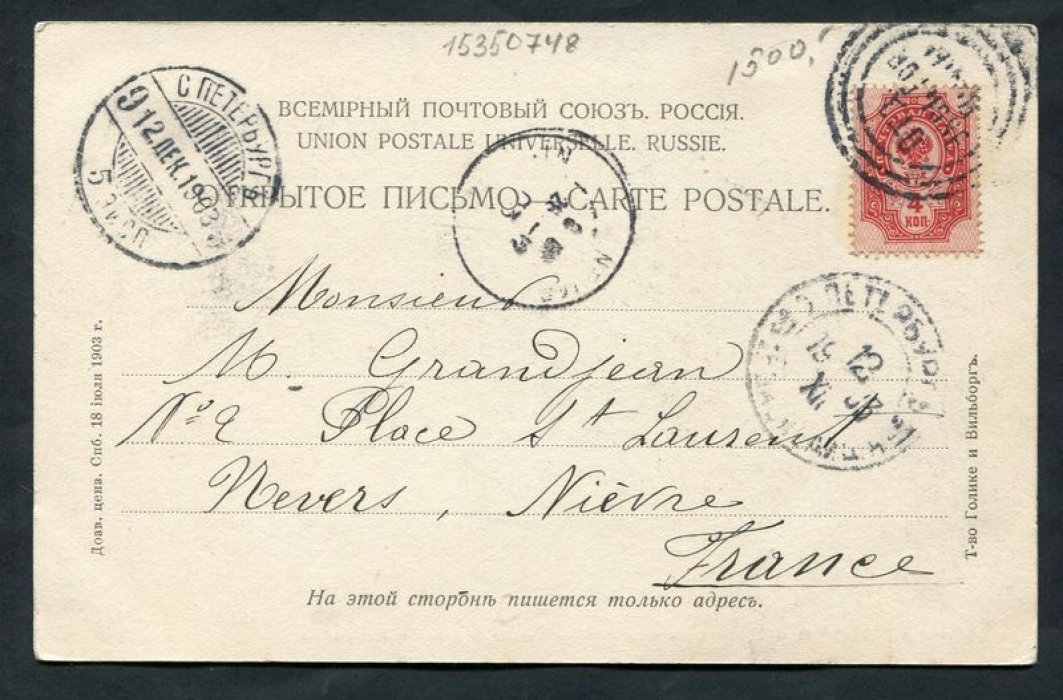 15350748
1500,-
ВСЕМІРНЫЙ ПОЧТОВЫЙ СОЮЗЪ. РОССІЯ.
UNION POSTALE UNIVERSELLE. RUSSIE.
ОТКРЫТОЕ ПИСЬМО — CARTE POSTALE.
С ПЕТЕРБУРГЪ
12.ДЕК.1903
5
4
КОП
С ПЕТЕРБУРГ
Monsieur
M. Grandjean
No 2 Place St Laurent
Nevers, Nièvre
France
На этой сторонѣ пишется только адресъ.
Дозв. ценз. Спб. 18 іюля 1903 г.
Т-во Голике и Вильборгъ.